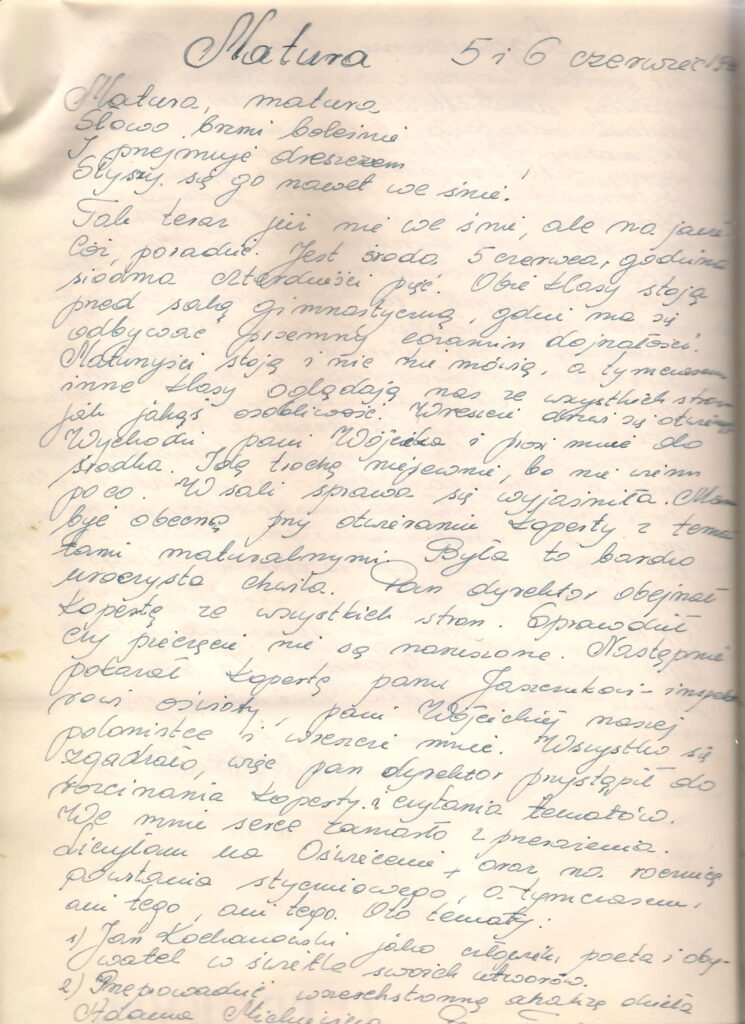 Matura 5 i 6 czerwiec
Matura, matura
Słowo brzmi boleśnie
I przejmuje dreszczem
Słyszy się go nawet we śnie!
Tak teraz już nie we śnie, ale na jawie
Cóż, poradzić. Jest środa 5 czerwca, godzina
siódma czterdzieści pięć. Obie klasy stoją
przed salą gimnastyczną, gdzie ma się
odbywać pisemny egzamin dojrzałości.
Maturzyści stoją i nic nie mówią, a tymczasem
inne klasy oglądają nas ze wszystkich stron
jak jakąś osobliwość. Wreszcie drzwi się
Wychodzi pani Wójcicka i prosi mnie do
środka. Idę trochę niepewnie, bo nie wiem
po co. W sali sprawa się wyjaśniła. Mam
być obecną przy otwieraniu koperty z tema
tami maturalnymi. Była to bardzo
uroczysta chwila. Pan dyrektor obejrzał
kopertę ze wszystkich stron. Sprawdził
czy pieczęcie nie są naruszone. Następnie
pokazał kopertę panu Jaszczukowi - inspek
rowi oświaty, pani Wójcickiej naszej
polonistce i wreszcie mnie. Wszystko się
zgadzało, więc pan dyrektor przystąpił do
rozcinania koperty i czytania tematów.
We mnie serce zamarło z przerażenia.
Liczyłam na Oświecenie, oraz na rocznicę
powstania styczniowego, a tymczasem,
ani tego, ani tego. Oto tematy:
1) Jan Kochanowski jako człowiek, poeta i oby-
watel w świetle swoich utworów.
2) Przeprowadzić wszechstronną analizę dzieła
Adama Mickiewicza